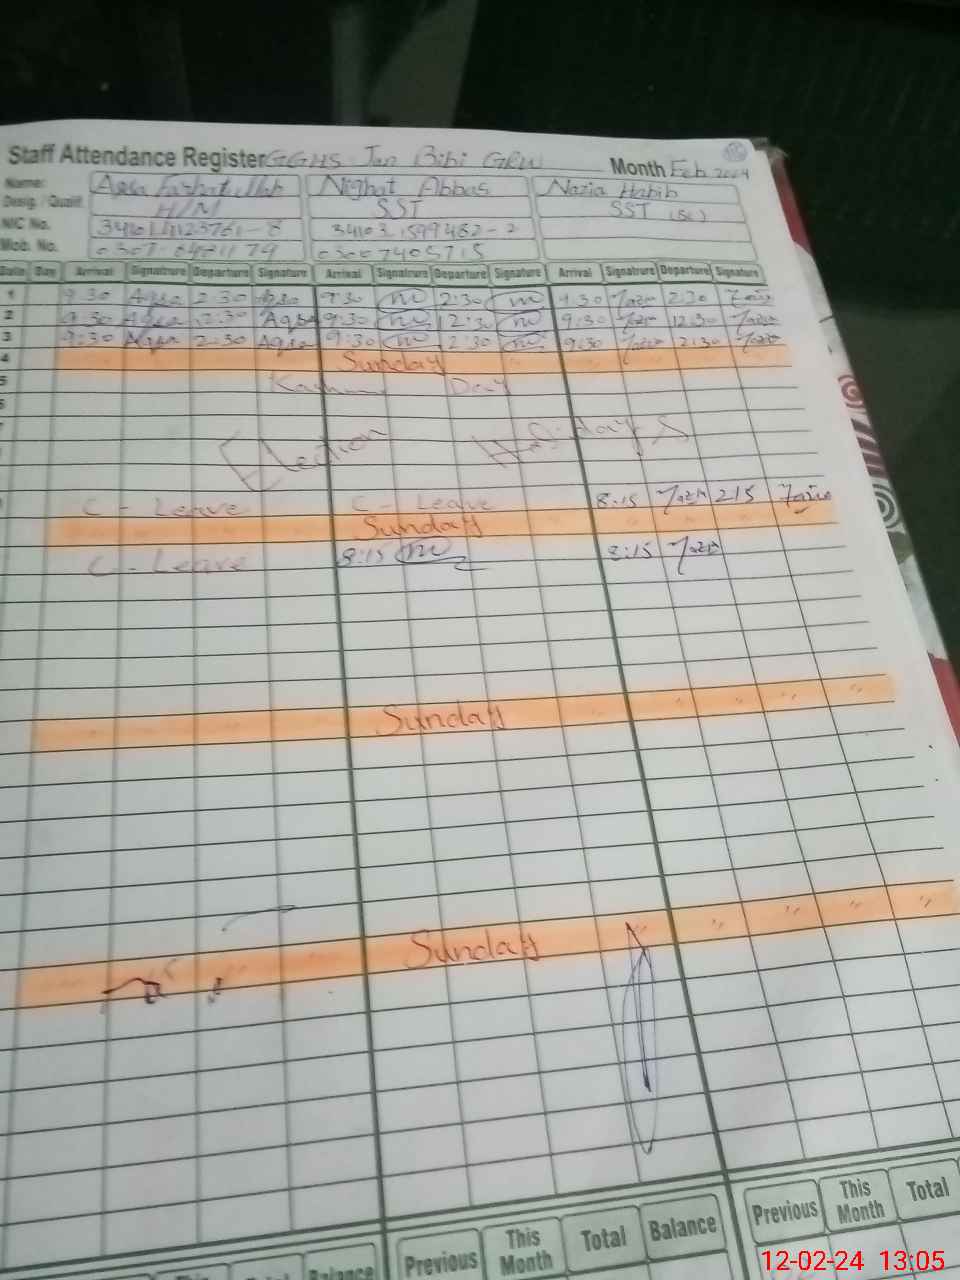 Staff Attendance Register GGHS Jan Bibi GRW Month Feb 2024
Name: Aqsa Farhatullah Nighat Abbas Nazia Habib
Desig. / Qualif. H/M SST SST (SC)
NIC No. 34103 1599482-2
Mob. No. 03007405715
Date Day Arrival Signature Departure Signature Arrival Signature Departure Signature Arrival Signature Departure Signature
1 9:30 Aqsa 2:30 Aqsa 9:30 2:30 9:30 2:30
2 9:30 Aqsa 12:30 Aqsa 9:30 12:30 9:30 12:30
3 9:30 Aqsa 2:30 Aqsa 9:30 2:30 9:30 2:30
4 Sunday
5 Day
6
Election Holidays
C - Leave C - Leave 8:15 215
Sunday
C - Leave 8:15 8:15
Sunday " " "
Sunday " " " "
Previous This Month Total Balance Previous This Month Total
Balance
12-02-24 13:05